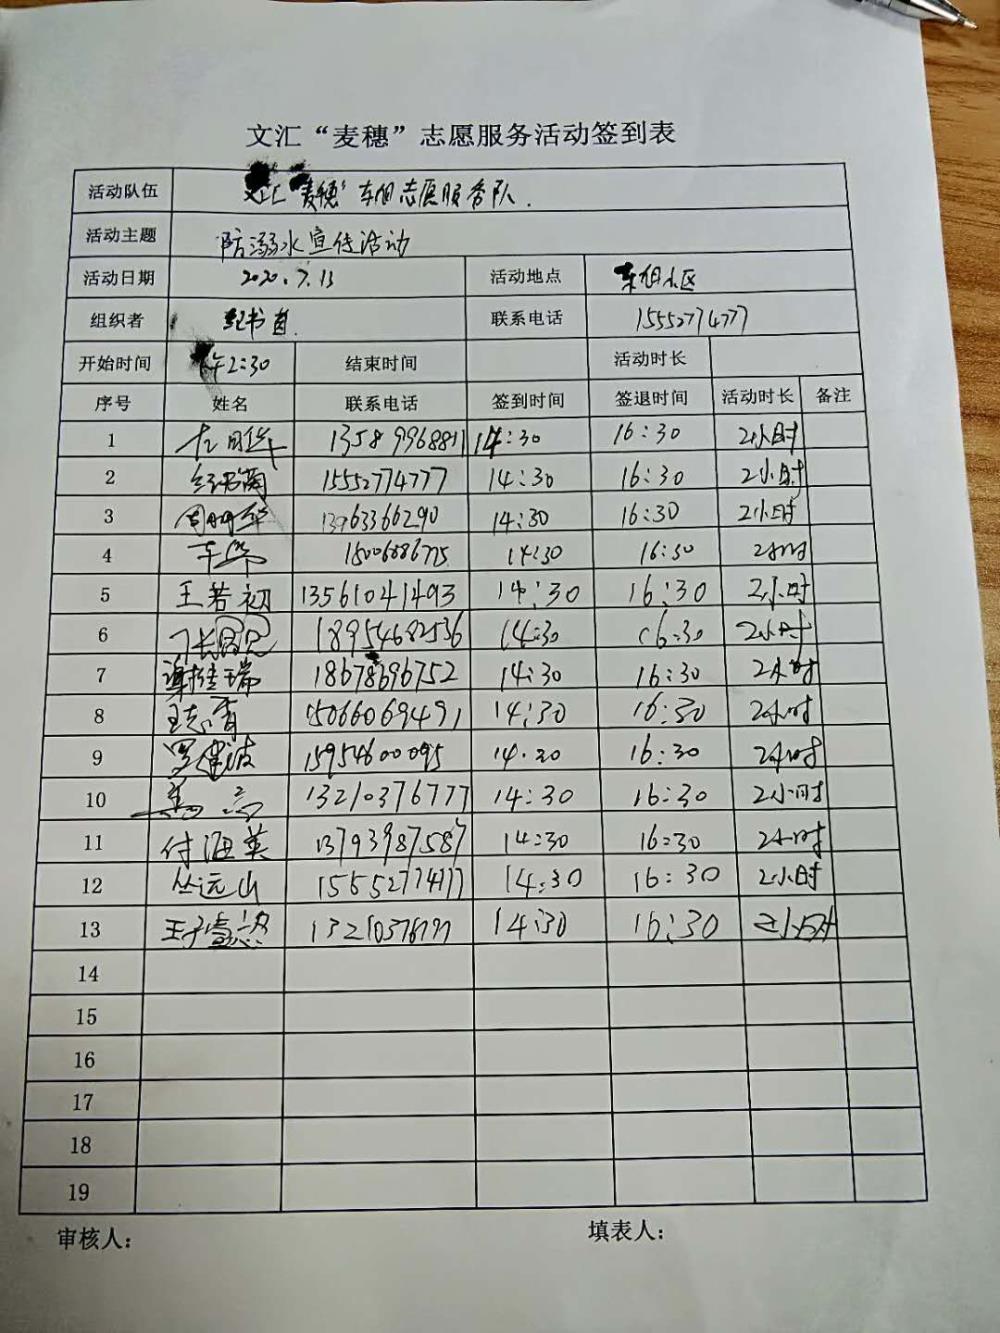 文汇“麦穗”志愿服务活动签到表
活动队伍 文汇“麦穗”车组志愿服务队.
活动主题 防溺水宣传活动
活动日期 2020.7.13 活动地点 小区
组织者 联系电话 15552774777
开始时间 午2:30 结束时间 活动时长
序号 姓名 联系电话 签到时间 签退时间 活动时长 备注
1 14:30 16:30 2小时
2 15552774777 14:30 16:30 2小时
3 周明华 13963366290 14:30 16:30 2小时
4 14:30 16:30 2小时
5 王若初 13561041493 14:30 16:30 2小时
6 18954682536 14:30 16:30 2小时
7 谢桂瑞 18678696752 14:30 16:30 2小时
8 王志香 15066069491 14:30 16:30 2小时
9 罗建波 15954600095 14:30 16:30 2小时
10 13210376777 14:30 16:30 2小时
11 付海英 13793987587 14:30 16:30 2小时
12 丛远山 14:30 16:30 2小时
13 14:30 16:30 2小时
14
15
16
17
18
19
审核人： 填表人：